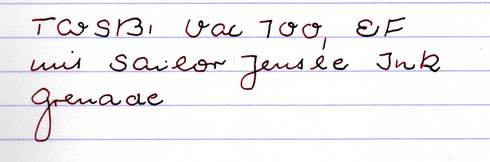 TWSBI Vac 700, EF
mit Sailor Jentle Ink
Grenade